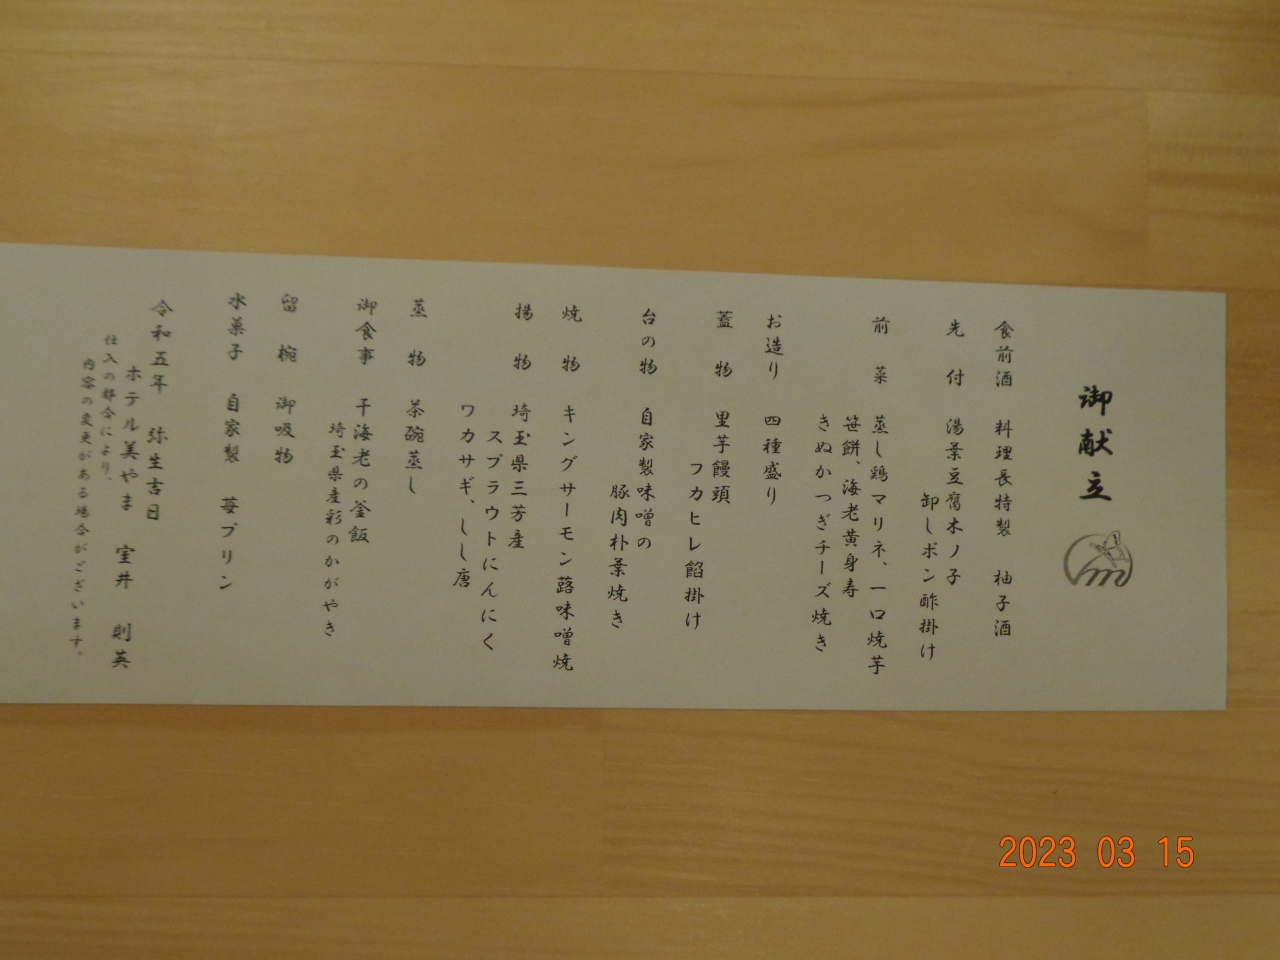 御献立
食前酒 料理長特製 柚子酒
先付 湯葉豆腐木ノ子
卸しポン酢掛け
前菜 蒸し鶏マリネ、一口焼芋
笹餅、海老黄身寿
きぬかつぎチーズ焼き
お造り 四種盛り
蓋物 里芋饅頭
フカヒレ餡掛け
台の物 自家製味噌の
豚肉朴葉焼き
焼物 キングサーモン蕗味噌焼
揚物 埼玉県三芳産
スプラウトにんにく
ワカサギ、しし唐
蒸物 茶碗蒸し
御食事 干海老の釜飯
埼玉県産彩のかがやき
留椀 御吸物
水菓子 自家製 苺プリン
令和五年 弥生吉日
ホテル美やま 室井 則英
仕入の都合により、
内容の変更がある場合がございます。
2023 03 15